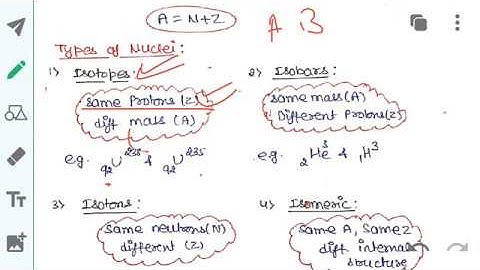 A = N+Z
A B
Types of Nuclei:
1) Isotopes:
Same Protons (Z)
diff mass (A)
e.g. ₉₂U²³⁸ & ₉₂U²³⁵
2) Isobars:
Same mass (A)
Different Protons (Z)
e.g. ₂He³ & ₁H³
3) Isotons:
Same neutrons (N)
different (Z)
4) Isomeric:
Same A, Same Z
diff internal
structure